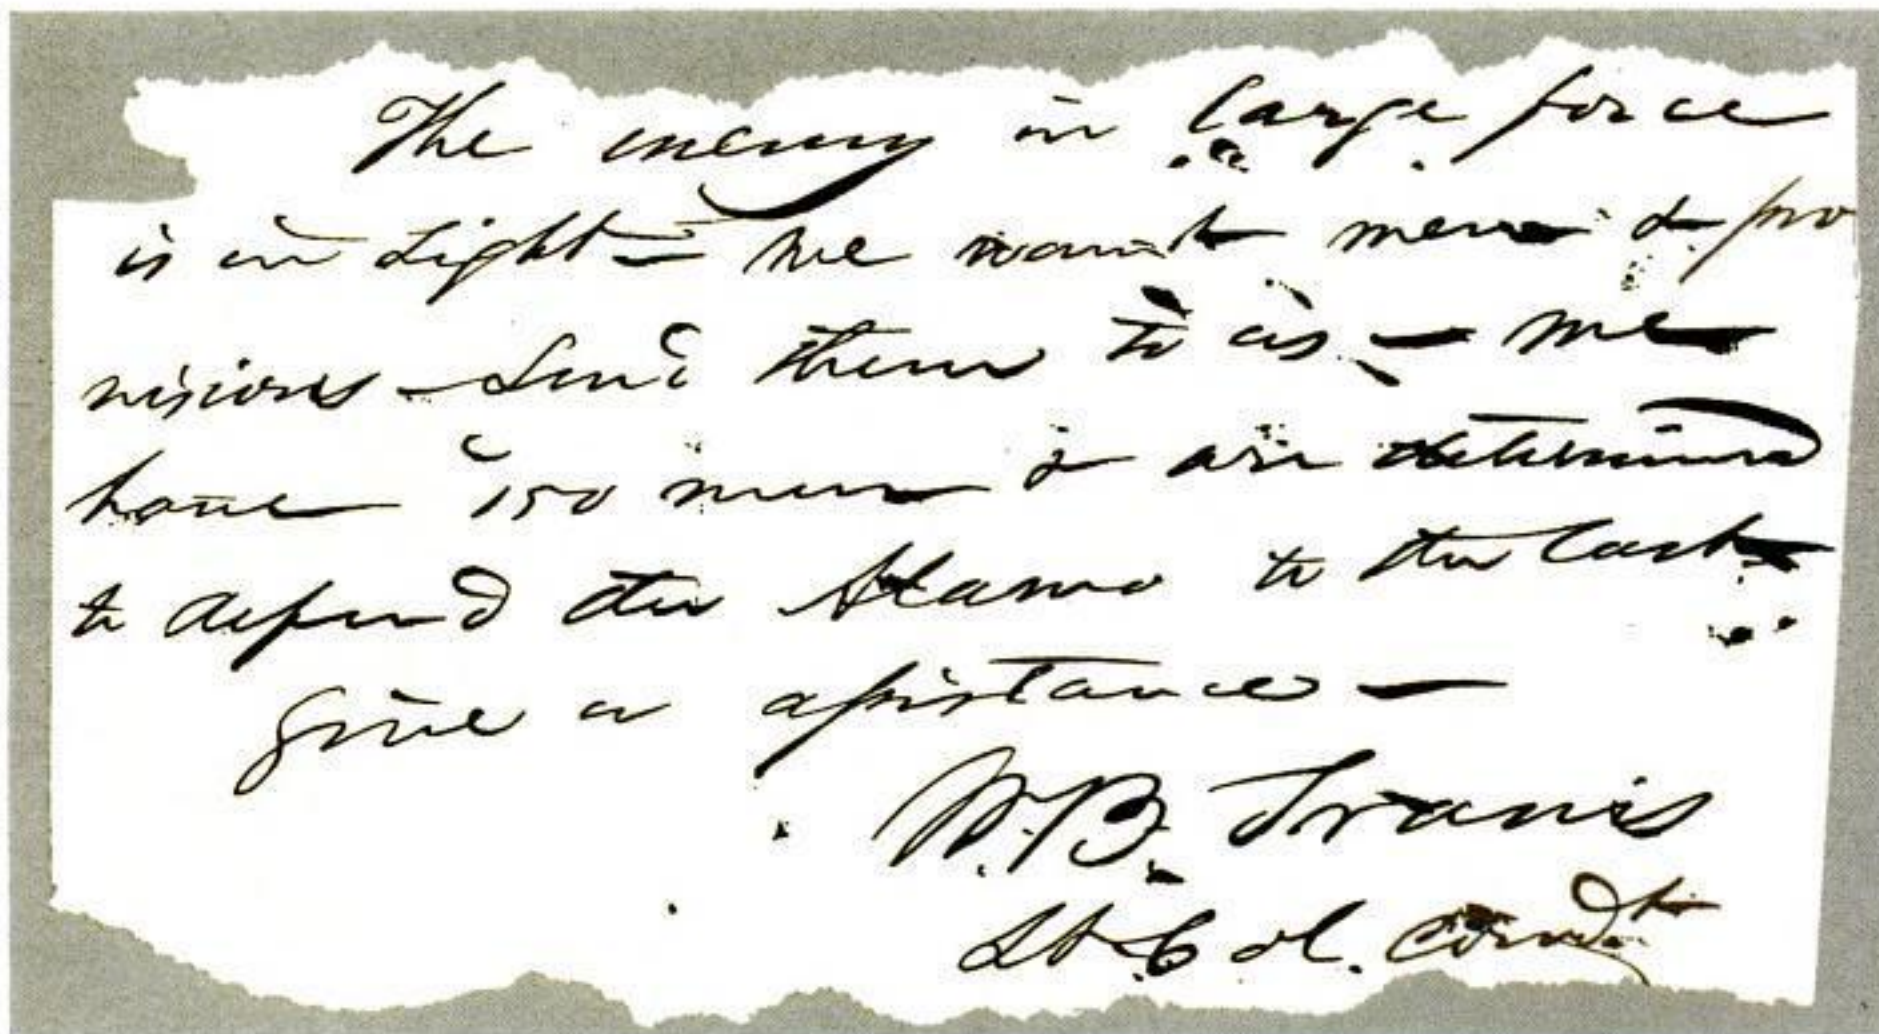 The enemy in large force
is in sight – We want men & pro
visions – Send them to us – We
have 150 men & are determined
to defend the Alamo to the last –
Give us assistance –
W. B. Travis
Lt. Col. Comdt